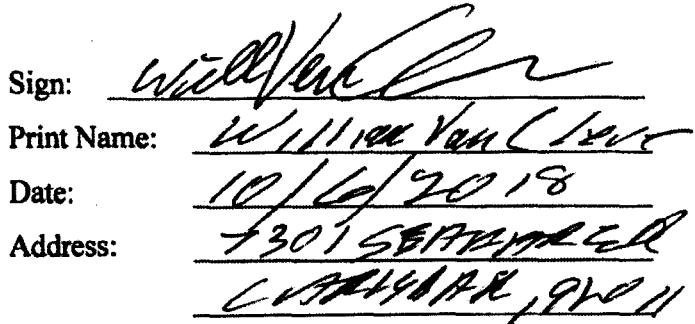 Sign: Will Van
Print Name: William Van Cleve
Date: 10/6/2018
Address: 7301
92011